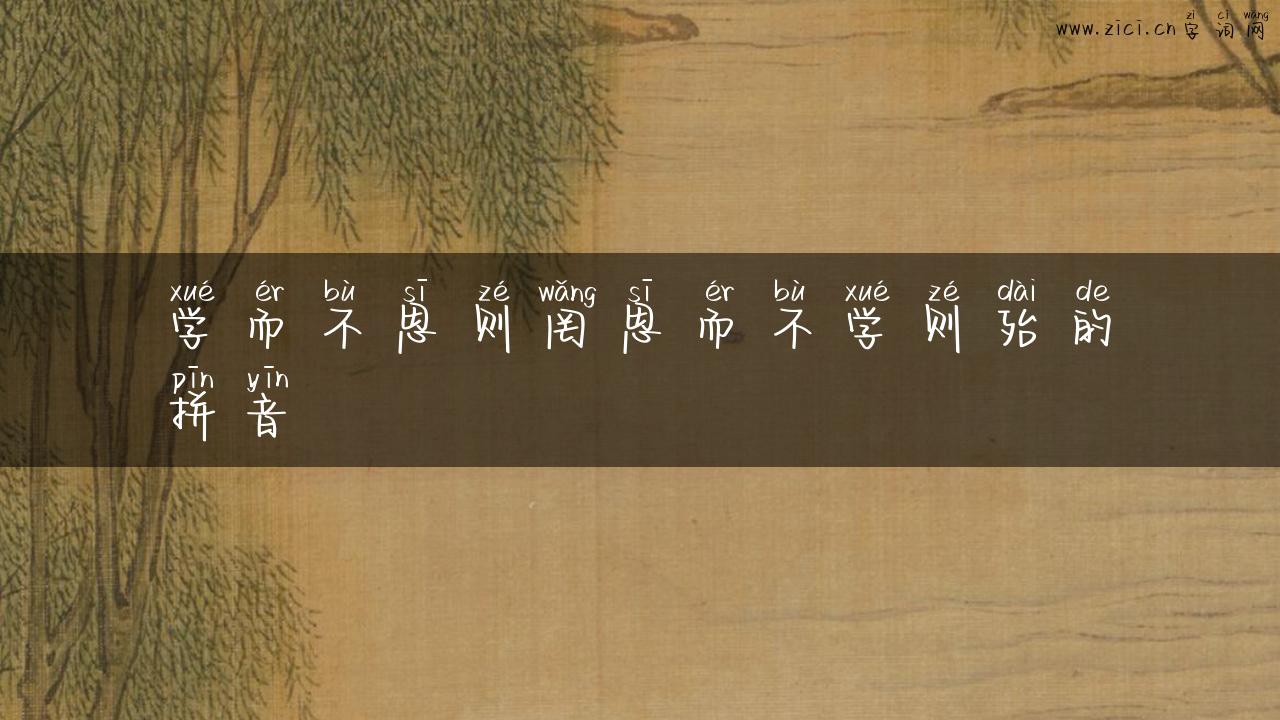 zì cí wǎng
www.zici.cn字词网
xué ér bù sī zé wǎng sī ér bù xué zé dài de
学而不思则罔思而不学则殆的
pīn yīn
拼音